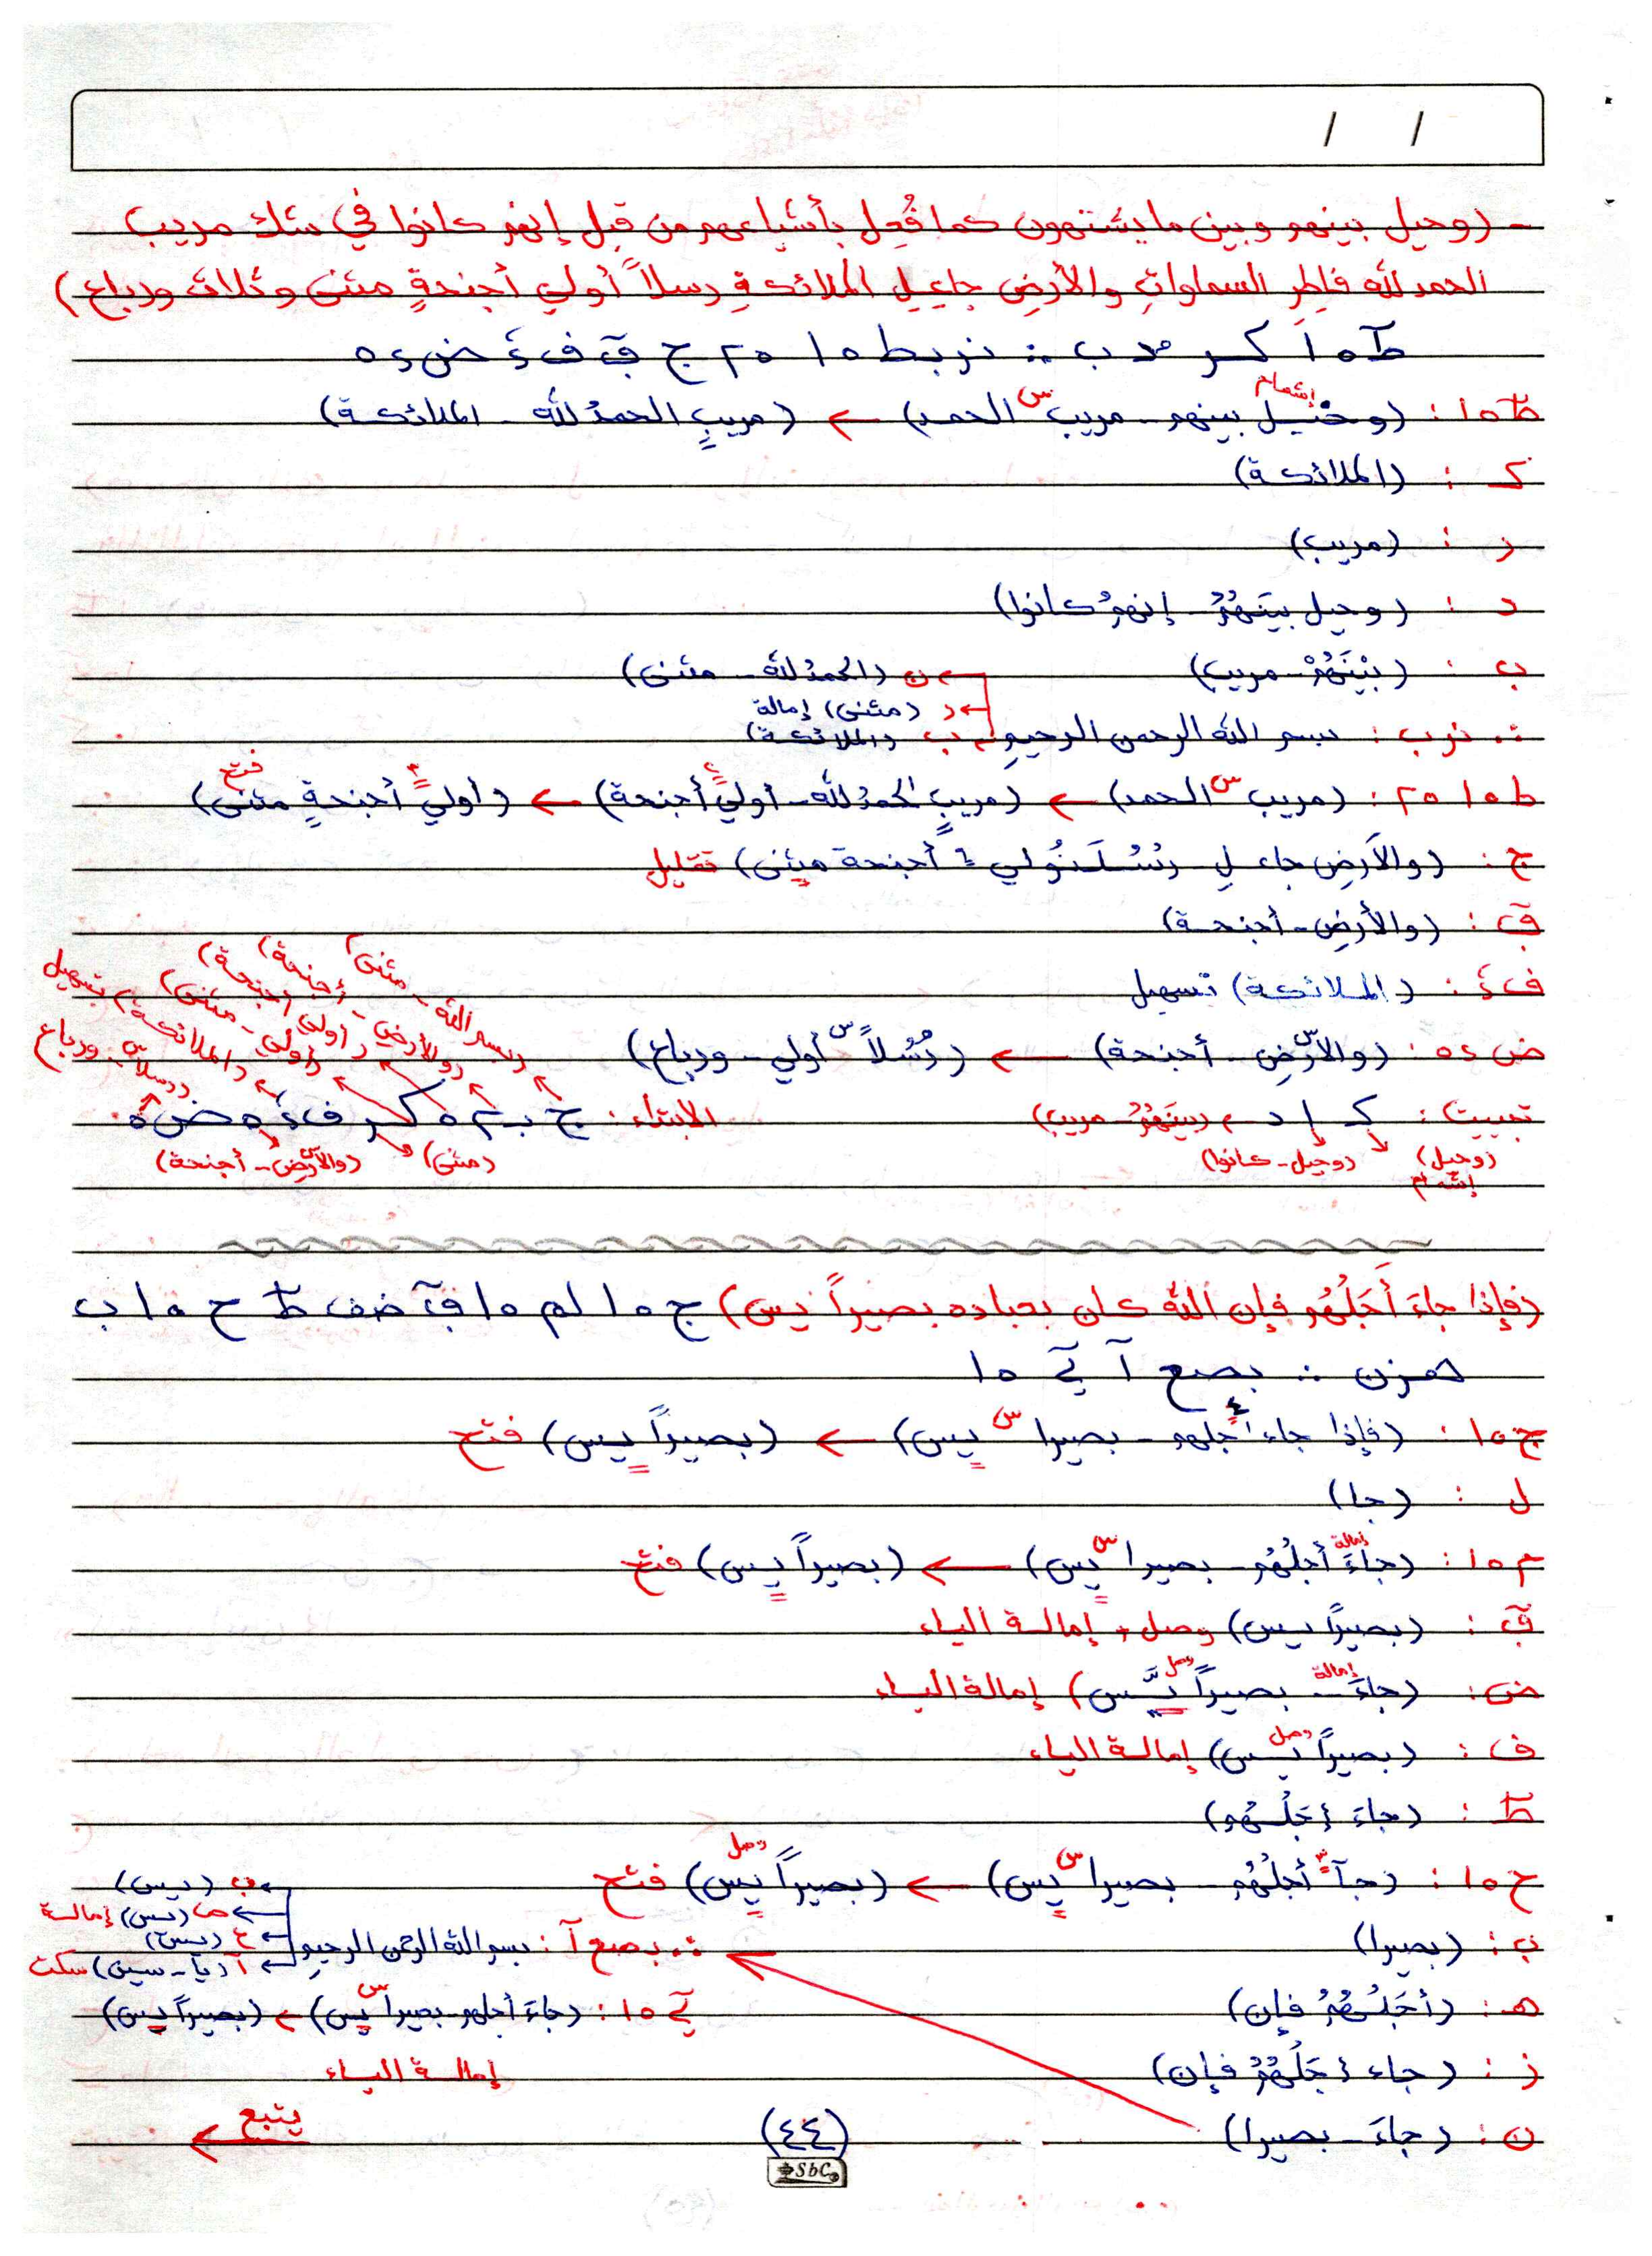 / /
- (وحيل بينهم وبين ما يشتهون كما فُعِل بأشياعهم من قبل إنهم كانوا في شك مريب
الحمد لله فاطِرِ السماواتِ والأرضِ جاعِلِ الملائكةِ رسلاً أولي أجنحةٍ مثنى وثلاث ورباع)
كر مد ب ∴ نربط ١٥ ٢٥ ج
إشمام
١٥ : (وحيل بينهم - مريب س الحمد) ← (مريبٍ الحمدُ لله - الملائكة)
ك : (الملائكة)
ر : (مريب)
د : (وحيل بينَهُمُ - إنهمُ كانوا)
ب : (بيْنَهُمْ - مريب) ← ن (الحمدُ لله - مثنى)
← ر (مثنى) إمالة
∴ نرب : بسم الله الرحمن الرحيمِ ← ب (الملائكة)
ط ١٥ ٢٥ : (مريب س الحمد) ← (مريبٍ الحمدُ لله - أولي أجنحة) ← (أولي أجنحةٍ مثنى) فتح
ج : (والأرضِ جاعلِ رسُلَنُولي أجنحة مثنى) تقليل
ق : (والأرضِ - أجنحة)
ف ئ : (الملائكة) تسهيل
ض ٥٤ : (والأرضِ س - أجنحة) ← (رُسُلاً س أولي - ورباع)
تبييت : ك ا د ← (بينَهُمُ - مريب)
(وحيل) إشمام
(وحيل - كانوا)
الابتداء : ج ب ٢ ٥ كر ف ئ ٥ ض ٥
(بسم الله - مثنى)
(والأرضِ - أجنحة)
(أولي أجنحة)
(أولي - مثنى)
(الملائكة) بتسهيل
(رسلاً س - ورباع)
(مثنى)
(والأرضِ س - أجنحة)
(فإذا جاءَ أَجَلُهُم فإن الله كان بعباده بصيراً يس) ج ١٥ لم ١٥ ق ضف ط ح ١٥ ب
هزن ∴ بصع آ ١٥
ج ١٥ : (فإذا جاء أجلهم - بصيرا س يس) ← (بصيراً يس) فتح
ل : (جا)
م ١٥ : (جاءَ إمالة أجلُهُم - بصيرا س يس) ← (بصيراً يس) فتح
ق : (بصيراً يس) وصل + إمالة الياء
ض : (جاءَ إمالة - بصيراً وصل يس) إمالة الياء
ف : (بصيراً وصل يس) إمالة الياء
ط : (جاءَ أجَلُهُم)
ح ١٥ : (جآ أجلُهُم - بصيرا س يس) ← (بصيراً وصل يس) فتح
ب : (بصيرا)
∴ بصع آ : بسم الله الرحمن الرحيمِ
← ب (يس)
← ص (يس) إمالة
← ع (يس)
← آ (يا - سين) سكت
هـ : (أجَلُهُمُ فإن)
١٥ : (جاءَ أجلهم - بصيرا س يس) ← (بصيراً يس)
إمالة الياء
ز : (جاء أجَلُهُمُ فإن)
ن : (جاءَ - بصيرا)
(٤٤)
يتبع
SbC